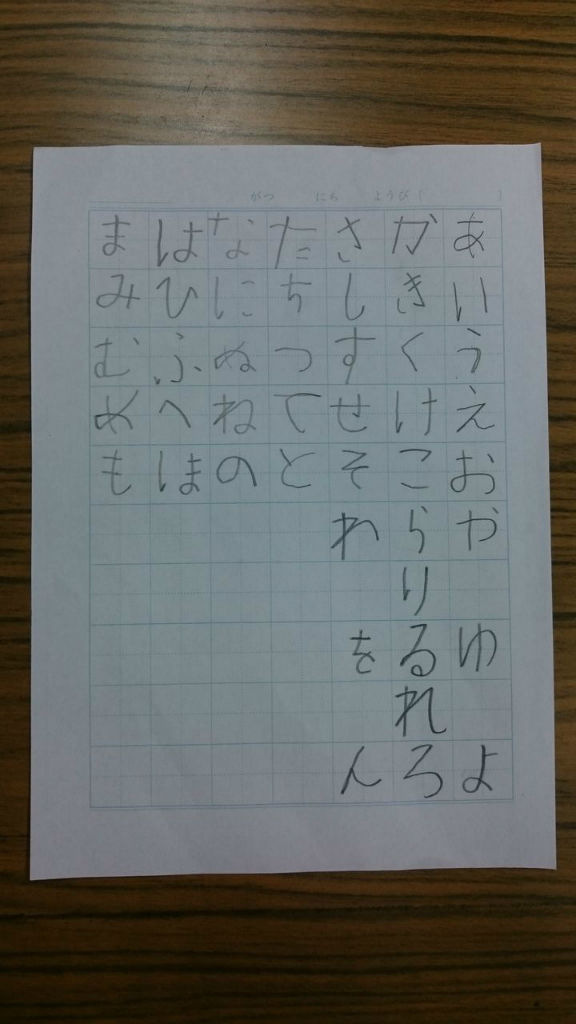 がつ にち ようび ( )
あいうえおや ゆ よ
かきくけこらりるれろ
さしすせそわ を ん
たちつてと
なにぬねの
はひふへほ
まみむめも